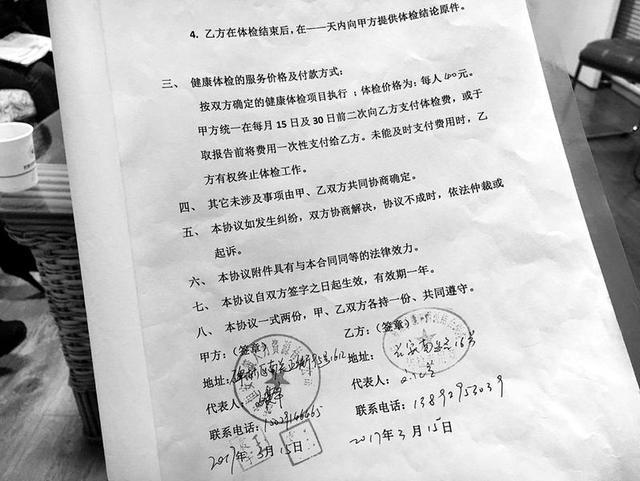 4. 乙方在体检结束后,在——天内向甲方提供体检结论原件。
三、 健康体检的服务价格及付款方式:
按双方确定的健康体检项目执行;体检价格为:每人 60元。
甲方统一在每月 15 日及 30 日前二次向乙方支付体检费,或于
取报告前将费用一次性支付给乙方。未能及时支付费用时,乙
方有权终止体检工作。
四、 其它未涉及事项由甲、乙双方共同协商确定。
五、 本协议如发生纠纷,双方协商解决,协议不成时,依法仲裁或
起诉。
六、 本协议附件具有与本合同同等的法律效力。
七、 本协议自双方签字之日起生效,有效期一年。
八、 本协议一式两份,甲、乙双方各持一份、共同遵守。
甲方:(签章)
地址:
代表人:
联系电话:
2017年 3月15日
乙方:(签章)
地址: 长安南路16号
代表人:
联系电话: 13892953039
2017年 3 月 15日